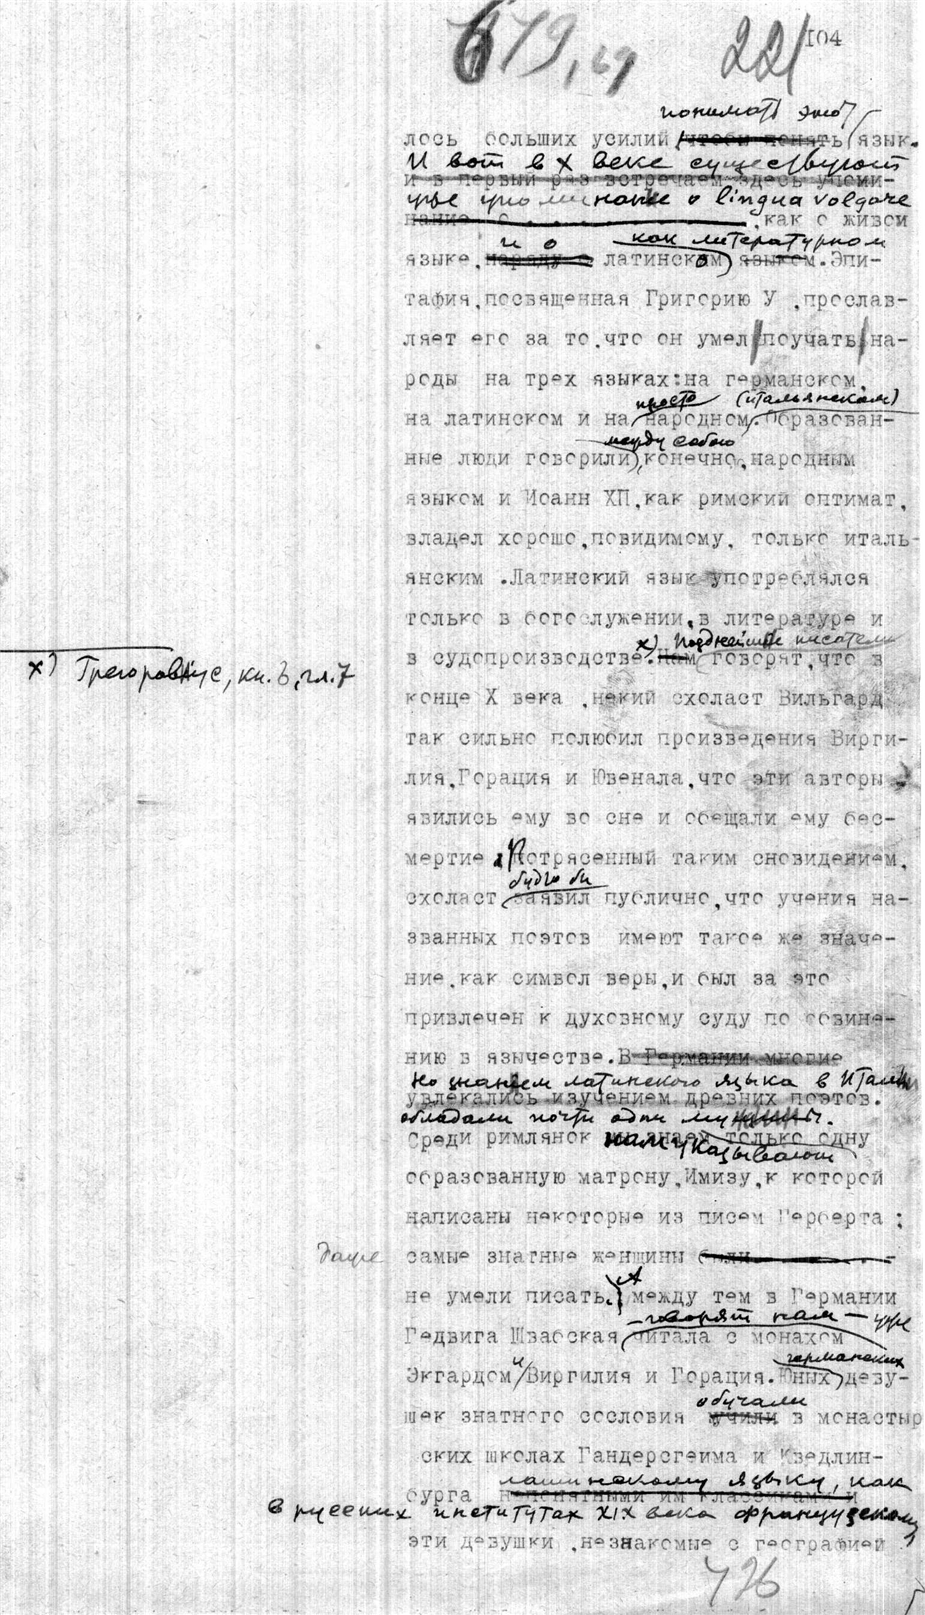 679,69 221 104
понимать этот
лось больших усилий чтобы понять язык.
И вот в X веке существуют
и в первый раз встречаем здесь упоми-
уже упоминание о lingua volgare
нание о как о живом
и о как литературном
языке, наряду с латинском языком. Эпи-
тафия, посвященная Григорию У, прослав-
ляет его за то, что он умел поучать на-
роды на трех языках: на германском,
просто (итальянском)
на латинском и на народном. Образован-
между собою
ные люди говорили, конечно, народным
языком и Иоанн ХП, как римский оптимат,
владел хорошо, повидимому, только италь-
янским. Латинский язык употреблялся
только в богослужении, в литературе и
х) Позднейшие писатели
в судопроизводстве. Нам говорят, что в
х) Грегоровиус, кн. 6, гл. 7
конце X века, некий схоласт Вильгард
так сильно полюбил произведения Вирги-
лия, Горация и Ювенала, что эти авторы
явились ему во сне и обещали ему бес-
мертие. Потрясенный таким сновидением,
будто бы
схоласт заявил публично, что учения на-
званных поэтов имеют такое же значе-
ние, как символ веры, и был за это
привлечен к духовному суду по обвине-
нию в язычестве. В Германии многие
Но знанием латинского языка в Италии
увлекались изучением древних поэтов.
обладали почти одни мужчины.
Среди римлянок мы знаем только одну
нам указывают
образованную матрону, Имизу, к которой
написаны некоторые из писем Герберта;
даже самые знатные женщины были
не умели писать. А между тем в Германии
— говорят нам — уже
Гедвига Швабская читала с монахом
германских
Экгардом и Виргилия и Горация. Юных деву-
обучали
шек знатного сословия учили в монастыр
ских школах Гандерсгеима и Кведлин-
латинскому языку, как
бурга непонятными им классиками и
в русских институтах XIX века французскому,
эти девушки, незнакомые с географией
426